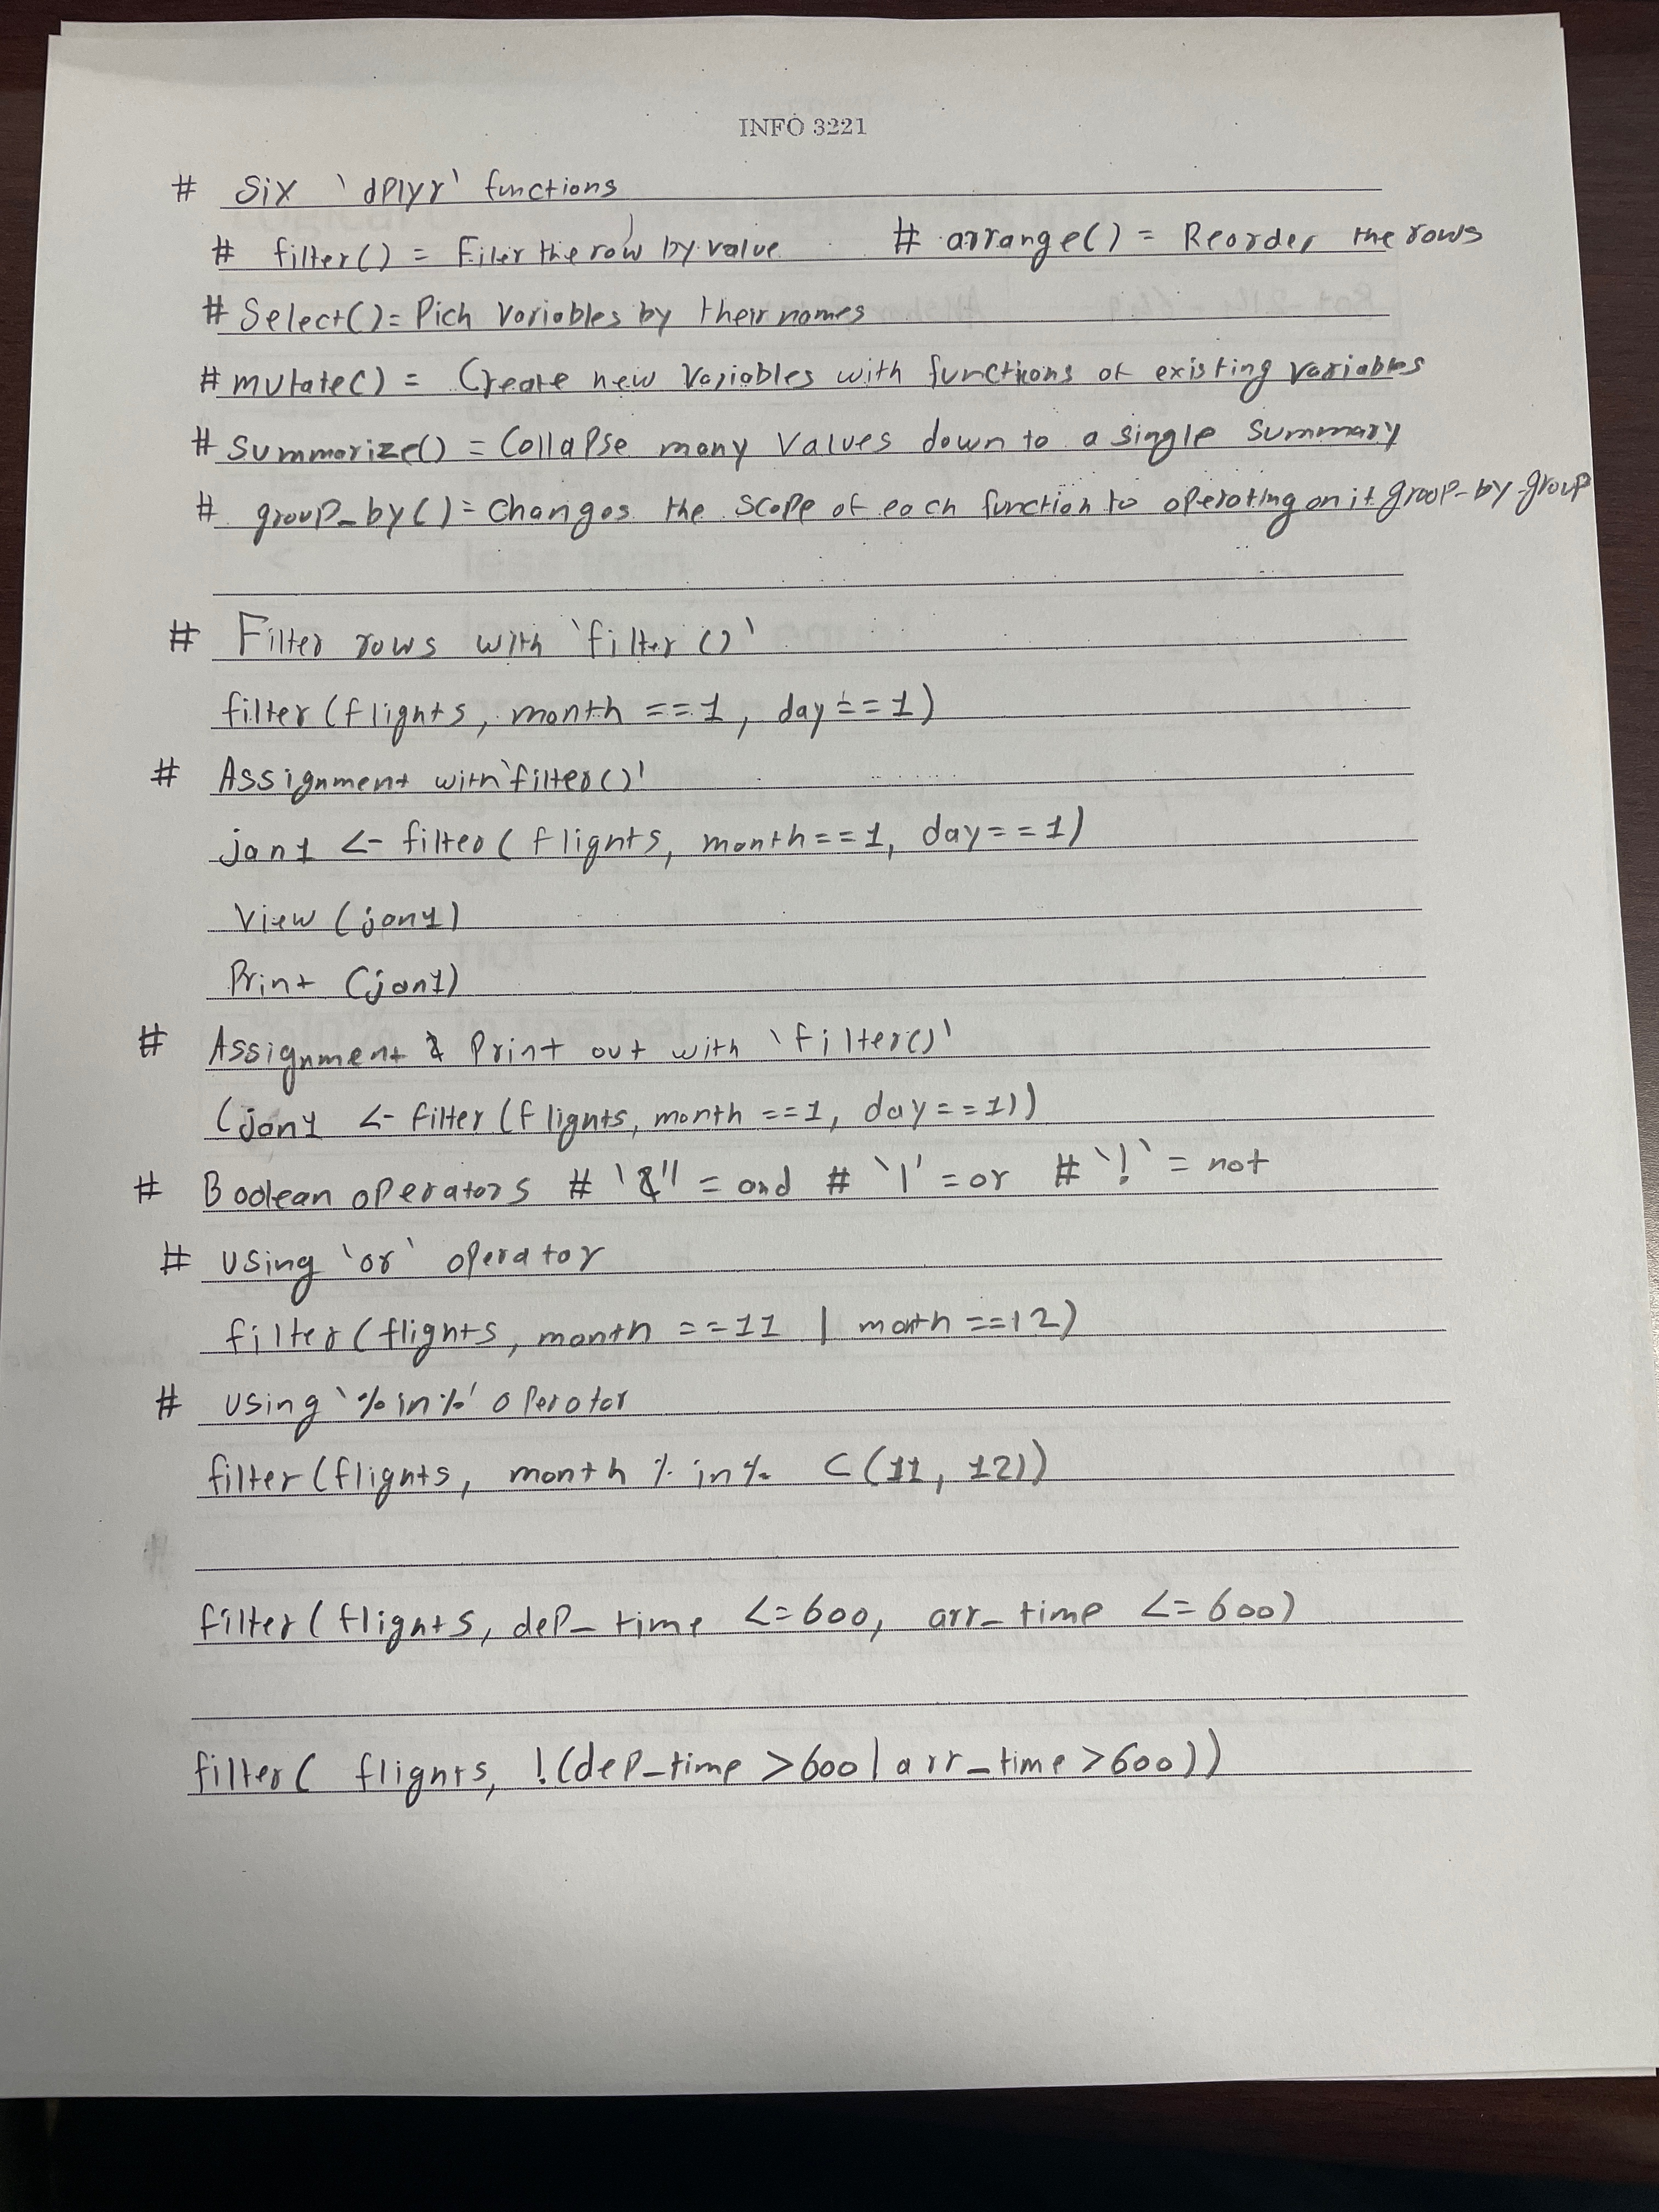 INFO 3221
# Six `dplyr' functions
# filter() = Filter the row by value # arrange() = Reorder the rows
# Select() = Pick variables by their names
# mutate() = Create new variables with functions of existing variables
# Summarize() = Collapse many values down to a single summary
# group_by() = Changes the scope of each function to operating on it group-by-group
# Filter rows with `filter()`
filter(flights, month == 1, day == 1)
# Assignment with `filter()'
jan1 <- filter(flights, month == 1, day == 1)
View (jan1)
Print (jan1)
# Assignment & Print out with `filter()'
(jan1 <- filter(flights, month == 1, day == 1))
# Boolean operators # '&'' = and # `|' = or # `!` = not
# using `or` operator
filter(flights, month == 11 | month == 12)
# using `%in%' operator
filter(flights, month %in% c(11, 12))
filter(flights, dep_time <= 600, arr_time <= 600)
filter( flights, !(dep_time > 600 | arr_time > 600))